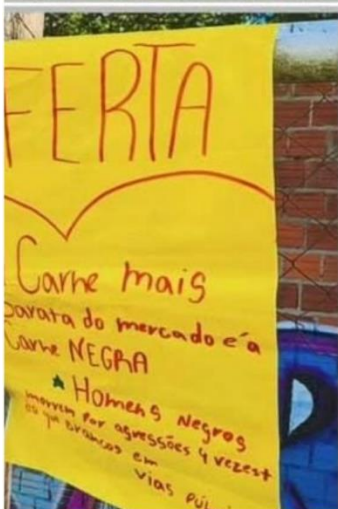 FERTA
Carne mais
barata do mercado é a
Carne NEGRA
★ Homens Negros
morrem por agressões 4 vezes +
do que brancos em
vias